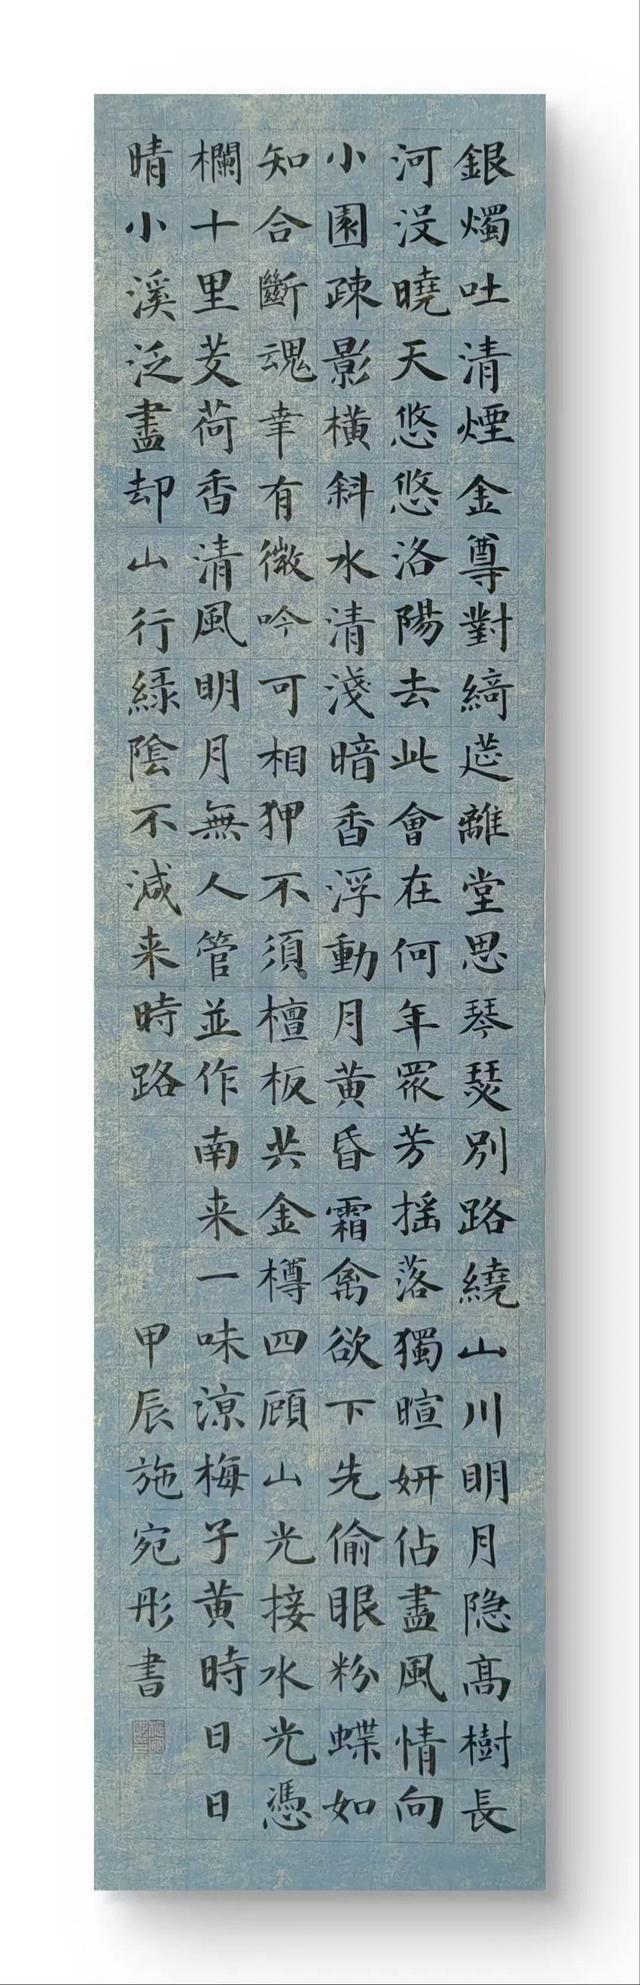 銀燭吐清煙金尊對綺莚離堂思琴瑟別路繞山川明月隐髙樹長
河没曉天悠悠洛陽去此會在何年眾芳摇落獨暄妍佔盡風情向
小園疎影橫斜水清淺暗香浮動月黄昏霜禽欲下先偷眼粉蝶如
知合斷魂幸有微吟可相狎不須檀板共金樽四顧山光接水光憑
欄十里芰荷香清風明月無人管並作南来一味涼梅子黄時日日
晴小溪泛盡却山行緑陰不減来時路 甲辰施宛彤書